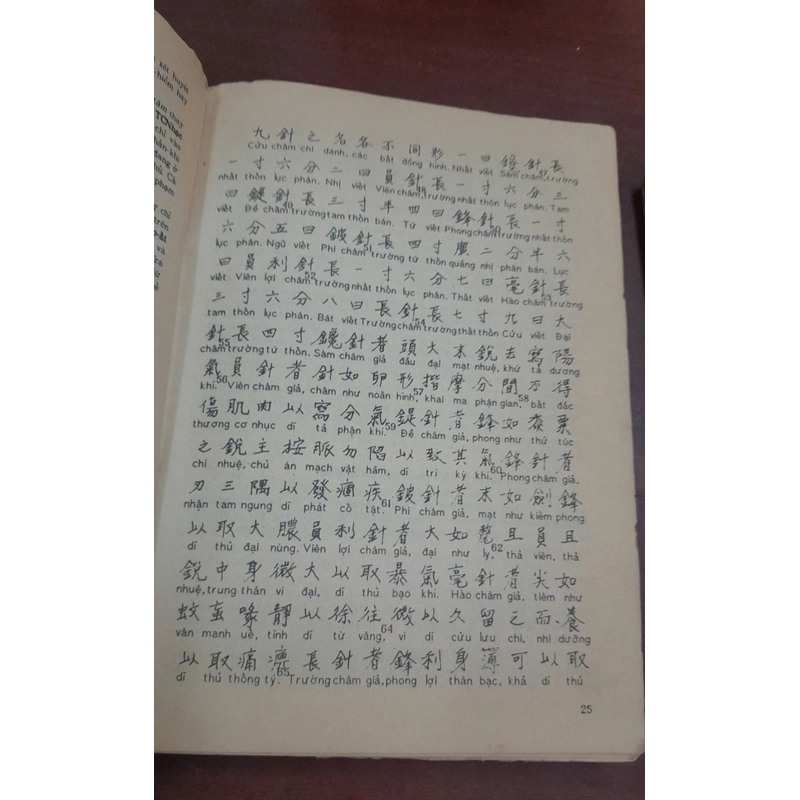 xét huyệt
hiểm hay
tám thay
TCNhạc
chỉ vào
hần khi
dang ở
hủ. Cả
phạm
chỉ
trên
và
ra
sử
kẻ
九針之名各不同形一曰鑱針長
Cửu châm chi danh, các bất đồng hình. Nhất viết Sàm châm,47 trường
一寸六分二曰員針長一寸六分三
nhất thốn lục phân. Nhị viết Viên châm,48 trường nhất thốn lục phân. Tam
曰鍉針長三寸半四曰鋒針長一寸
viết Đề châm49 trường tam thốn bán. Tứ viết Phong châm50 trường nhất thốn
六分五曰鈹針長四寸廣二分半六
lục phân. Ngũ viết Phi châm51 trường tứ thốn quảng nhị phân bán. Lục
曰員利針長一寸六分七曰毫針長
viết Viên lợi châm52 trường nhất thốn lục phân. Thất viết Hào châm53 trường
三寸六分八曰長針長七寸九曰大
tam thốn lục phân. Bát viết Trường châm54 trường thất thốn Cửu viết Đại
針長四寸鑱針者頭大末銳去寫陽
châm55 trường tứ thốn. Sàm châm giả đầu đại mạt nhuệ, khứ tả dương
氣員針者針如卵形揩摩分間不得
khí.56 Viên châm giả, châm như noãn hình,57 khai ma phận gian,58 bất đắc
傷肌肉以寫分氣鍉針者鋒如黍粟
thương cơ nhục dĩ tả phận khí.59 Đề châm giả, phong như thử túc
之銳主按脈勿陷以致其氣鋒針者
chi nhuệ, chủ án mạch vật hãm, dĩ trí kỳ khí.60 Phong châm giả,
刃三隅以發痼疾鈹針者末如劍鋒
nhận tam ngung dĩ phát cố tật.61 Phi châm giả, mạt như kiếm phong
以取大膿員利針者大如氂且員且
dĩ thủ đại nùng. Viên lợi châm giả, đại như ly,62 thả viên, thả
銳中身微大以取暴氣毫針者尖如
nhuệ, trung thân vi đại, dĩ thủ bạo khí. Hào châm giả, tiêm như
蚊虻喙靜以徐往微以久留之而養
văn manh uế, tỉnh dĩ từ vãng,64 vi dĩ cửu lưu chi, nhi dưỡng
以取痛痹長針者鋒利身薄可以取
dĩ thủ thống tý.65 Trường châm giả, phong lợi thân bạc, khả dĩ thủ
25